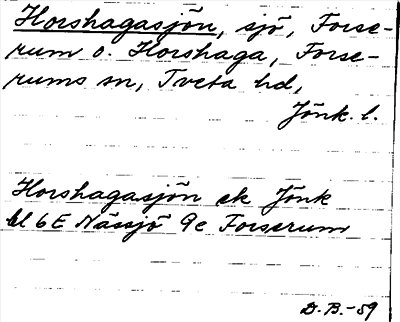 Horshagasjön, sjö, Forse-
rum o. Horshaga, Forse-
rums sn, Tveta hd,
Jönk. l.
Horshagasjön ek Jönk
bl 6E Nässjö 9e Forserum
D. B. -59